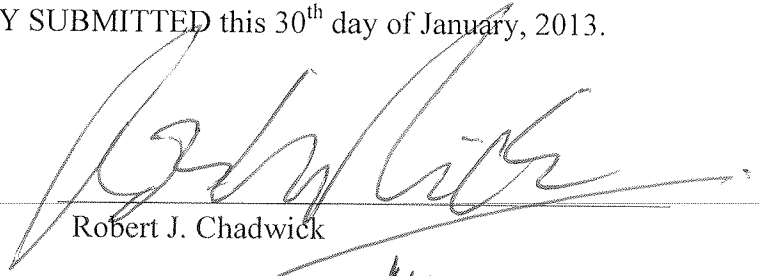 Y SUBMITTED this 30th day of January, 2013.
Robert J. Chadwick